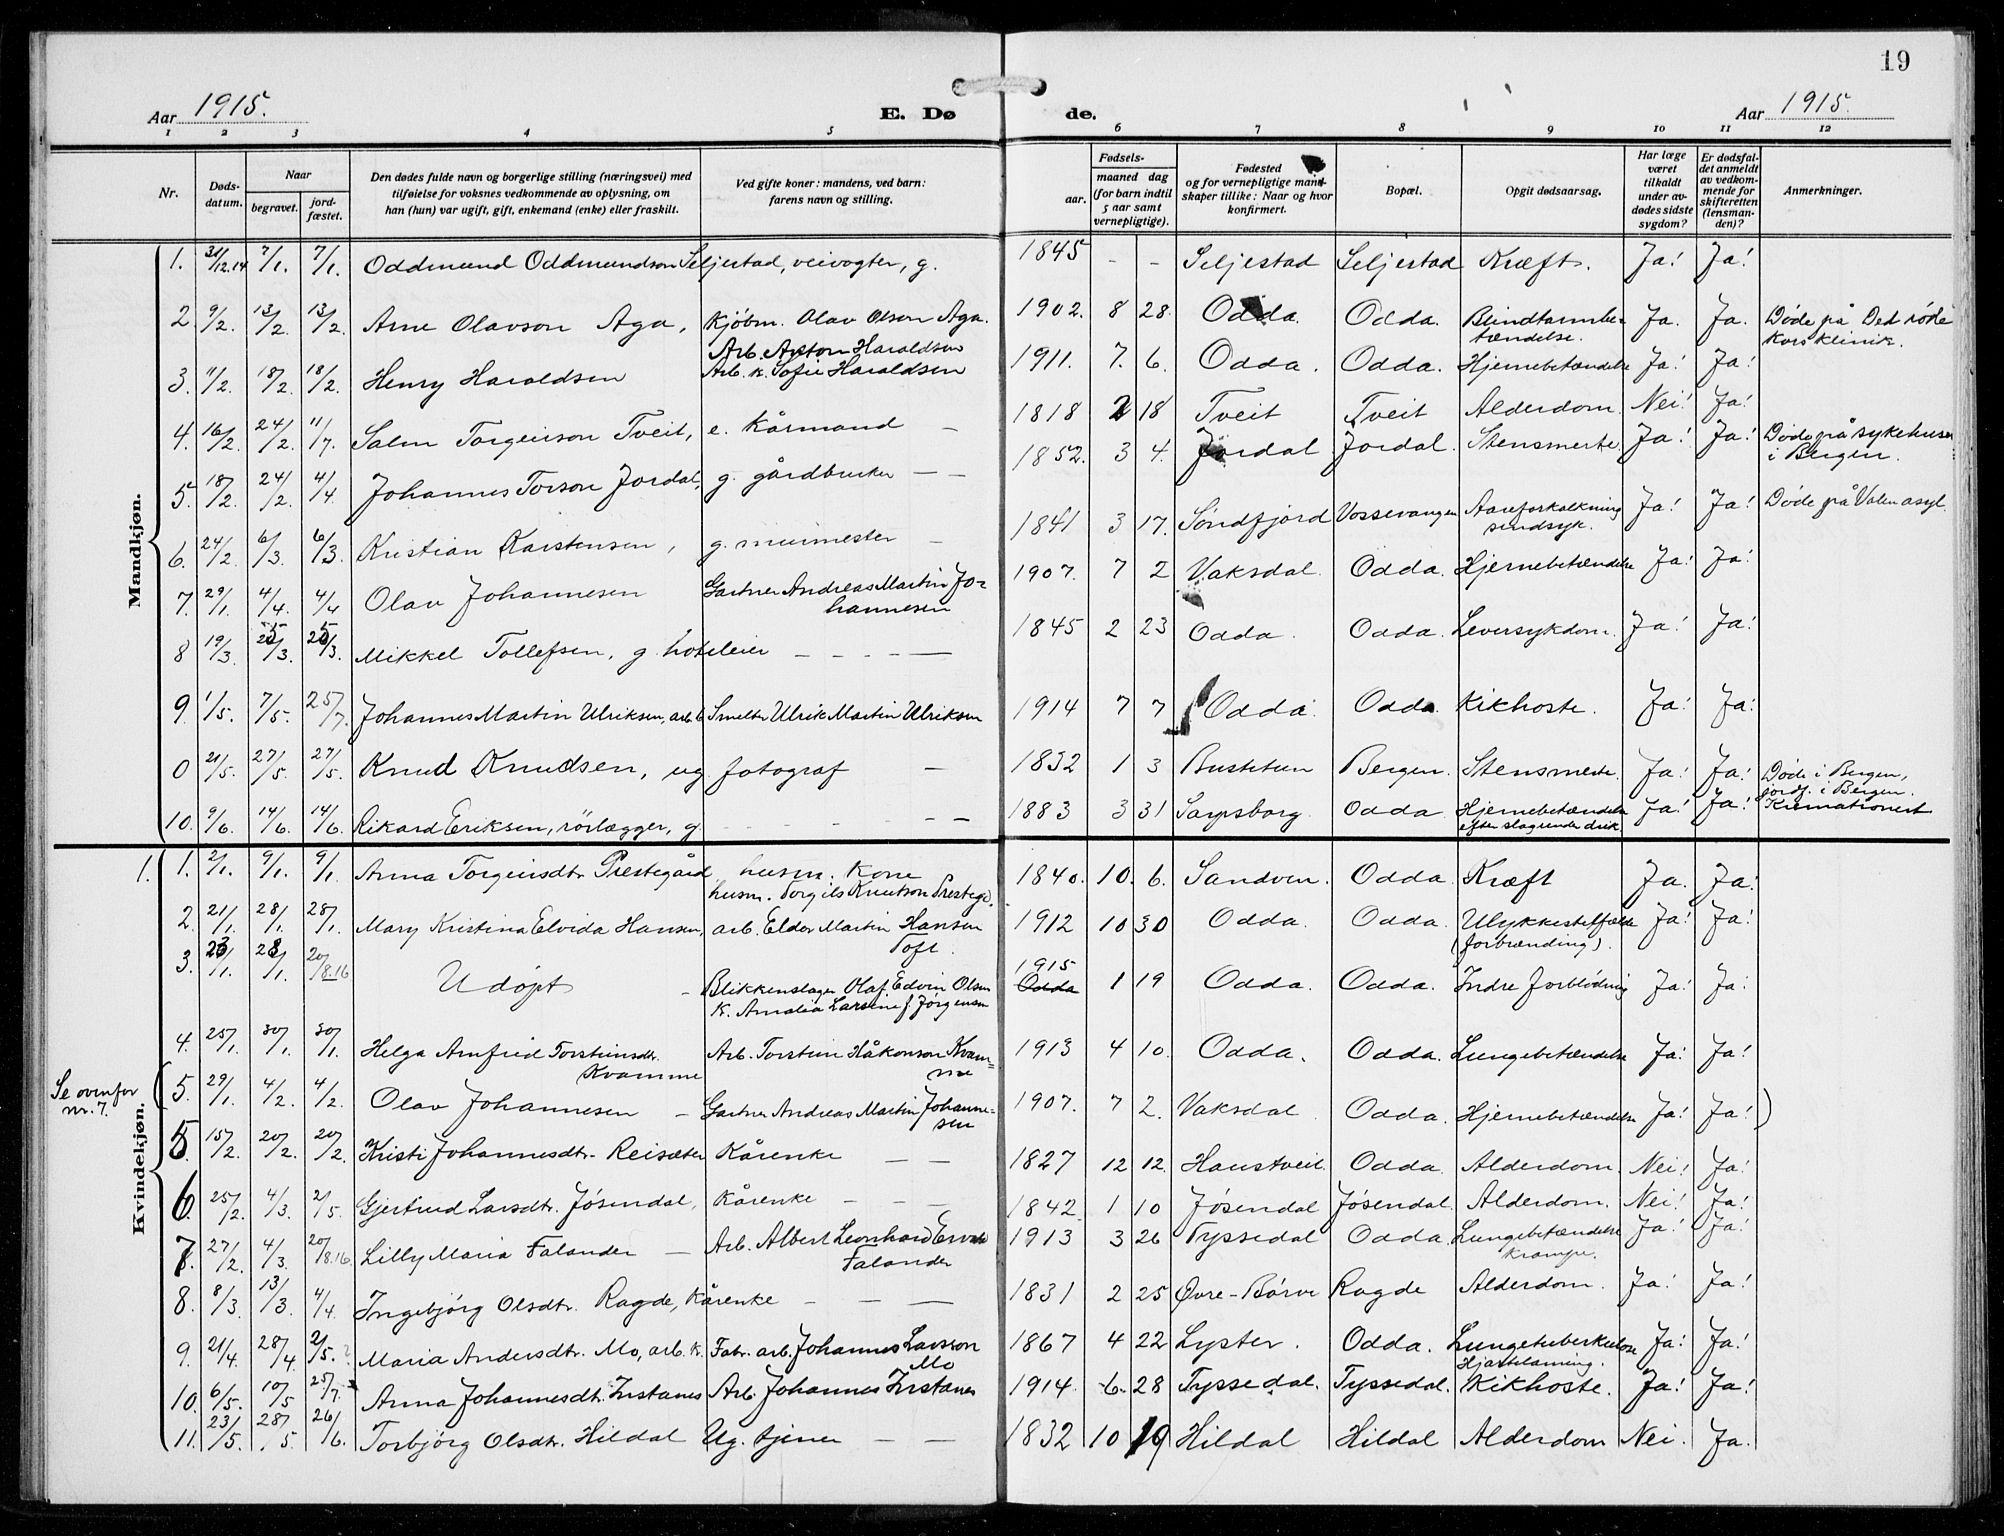 19
Aar 1915.
E. Dø
de.
Aar 1915.
1 2 3 4 5 6 7 8 9 10 11 12
Nr.
Døds-
datum.
Naar
begravet.
jord-
fæstet.
Den dødes fulde navn og borgerlige stilling (næringsvei) med
tilføielse for voksnes vedkommende av oplysning, om
han (hun) var ugift, gift, enkemand (enke) eller fraskilt.
Ved gifte koner: mandens, ved barn:
farens navn og stilling.
Fødsels-
aar.
maaned dag
(for barn indtil
5 aar samt
vernepligtige).
Fødested
og for vernepligtige mand-
skaper tillike: Naar og hvor
konfirmert.
Bopæl.
Opgit dødsaarsag.
Har læge
været
tilkaldt
under av-
dødes sidste
sygdom?
Er dødsfal-
det anmeldt
av vedkom-
mende for
skifteretten
(lensman-
den)?
Anmerkninger.
Mandkjøn.
1. 31/12.14 7/1. 7/1. Oddmund Oddmundson Seljestad, veivogter, g. 1845 - - Seljestad Seljestad Kræft. Ja! Ja!
2. 9/2. 13/2 13/2. Arne Olavson Aga, Kjøbm. Olav Olson Aga. 1902. 8 28. Odda. Odda. Blindtarmbe-
tændelse. Ja. Ja. Døde på Det røde
Kors klinik.
Arb. Anton Haraldsen
3. 11/2. 18/2. 18/2. Henry Haraldsen Arb. k. Sofie Haraldsen 1911. 7. 6. Odda. Odda. Hjernebetændelse Ja! Ja!
4. 16/2. 24/2. 11/7. Salm Torgeirson Tveit, e. Kårmand - 1818 2 18 Tveit Tveit Alderdom. Nei! Ja!
5. 18/2 24/2. 4/4. Johannes Torson Jordal, g. gårdbruker - - 1852. 3 4. Jordal Jordal. Stensmerte Ja! Ja! Døde på sykehuset
i Bergen.
6. 24/2 6/3. 6/3. Kristian Karstensen, g. murmester - 1841 3 17. Søndfjord Vossevangen Aareforkalkning
sindsyk. Ja! Ja! Døde på Valen asyl.
7. 29/1. 4/4. 4/4 Olav Johannesen Gartner Andreas Martin Jo-
hannesen 1907. 7 2 Vaksdal. Odda. Hjernebetændelse Ja! Ja!
8 19/3. 25/3. 25/3. Mikkel Tollefsen, g. hoteleier - - - - 1845 2 23 Odda. Odda. Leversykdom. Ja! Ja!
9. 1/5. 7/5. 25/7. Johannes Martin Ulriksen, arb. b. Smelter Ulrik Martin Ulriksen 1914 7 7 Odda. Odda Kikhoste. Ja! Ja!
0 21/5. 27/5. 27/5. Knud Knudsen, ug. fotograf - 1832 1 3 Bustetun Bergen. Stensmerte. Ja! Ja! Døde i Bergen,
jordf. i Bergen.
10. 9/6. 14/6. 14/6. Rikard Eriksen, rørlægger, g. - - - - 1883 3 31 Sarpsborg Odda. Hjernebetændelse
efter slagrende drik Ja! Ja! Kremationert
Kvindekjøn.
1. 1. 2/1. 9/1. 9/1. Anna Torgeirsdtr. Prestegård, husm. kone
husm. Torgils Knutson Presteg. 1840. 10. 6. Sandven. Odda. Kræft Ja. Ja.
2. 21/1. 28/1. 28/1. Mary Kristina Elvida Hansen, arb. Elder Martin Hansen
Toft. 1912 10 30 Odda. Odda. Ulykkestilfælde
(forbrænding). Ja! Ja!
3. 23/1. 28/1. 20/8.16 Udøpt - Blikkenslager Olaf Edvin Olsen
K. Amalia Larsine f. Jørgensen 1915
Odda 1 19 Odda. Odda. Indre forblødning Ja! Ja!
4. 25/1. 30/1. 30/1. Helga Arnfrid Torsteinsdtr.
Kvamme Arb. Torstein Håkonson Kvam-
me 1913 4 10. Odda. Odda. Lungebetændelse Ja! Ja!
Se ovenfor
nr. 7.
(5. 29/1. 4/2. 4/2. Olav Johannesen - Gartner Andreas Martin Johanne-
sen 1907. 7 2. Vaksdal. Odda. Hjernebetændelse Ja! Ja!)
5. 15/2. 20/2. 20/2. Kristi Johannesdtr. Reisæter Kårenke - - 1827 12 12. Haustveit. Odda. Alderdom. Nei! Ja!
6. 25/2. 4/3. 2/5. Gjertrud Larsdtr. Jøsendal, Kårenke - - - 1842. 1 10 Jøsendal Jøsendal. Alderdom. Nei! Ja!
7. 27/2. 4/3. 20/8.16. Lilly Maria Falander - Arb. Albert Leonhard
Falander 1913 3 26 Tyssedal Odda. Lungebetændelse
Krampe. Ja! Ja!
8. 8/3. 13/3. 4/4. Ingebjørg Olsdtr. Ragde, Kårenke - - - 1831 2 25 Øvre-Børve Ragde Alderdom. Ja! Ja!
9. 21/4. 28/4 2/5. Maria Andersdtr. Mo, arb. k. Fabr. arb. Johannes Larsson
Mo 1867 4 22 Lyster. Odda. Lungetuberkulose
Hjertelamning. Ja! Ja!
10. 6/5. 10/5 25/7. Anna Johannesdtr. Instanes Arb. Johannes Instanes 1914. 6. 28 Tyssedal. Tyssedal. Kikhoste. Ja! Ja!
11. 23/5. 28/5. 26/6. Torbjørg Olsdtr. Hildal Ug. tjener - - 1832 10 19 Hildal Hildal Alderdom Nei. Ja.